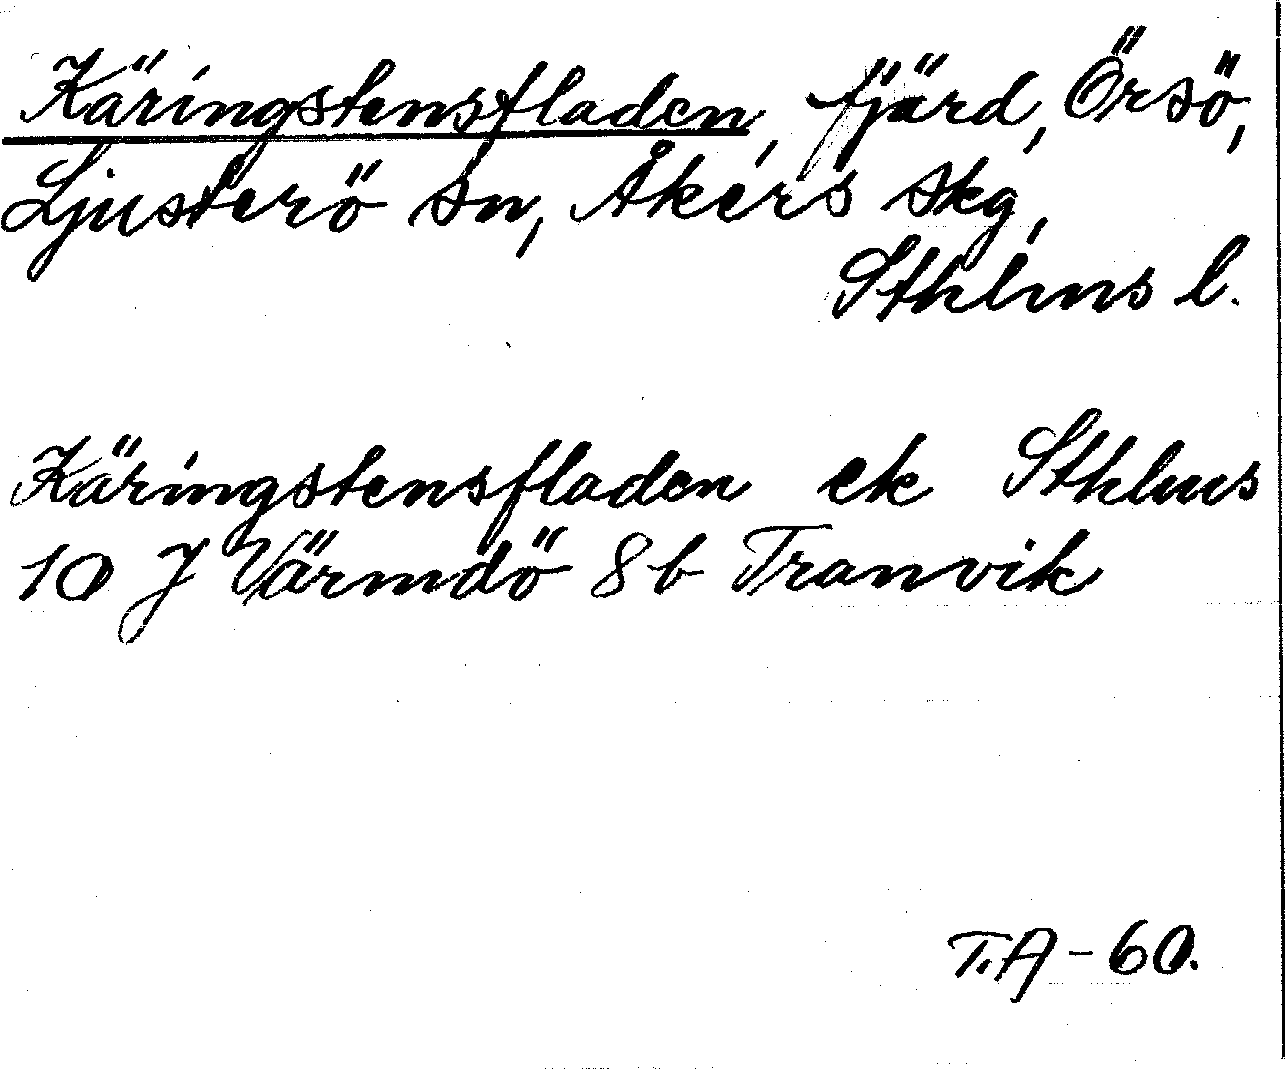 Käringstensfladen, fjärd, Örsö,
Ljusterö sn, Åkers skg,
Sthlms l.
Käringstensfladen ek Sthlms
10 J Värmdö 8b Tranvik
T.A-60.